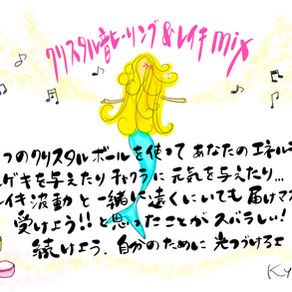 クリスタル音ヒーリング&レイキmix
つのクリスタルボールを使って あなたのエネルギ
ゲキを与えたり チャクラに元気を与えたり...
イキ波動と一緒に遠くにいても届けマス
受けよう!!と思ったことがスバラしい!
続けよう、自分のために
Ky